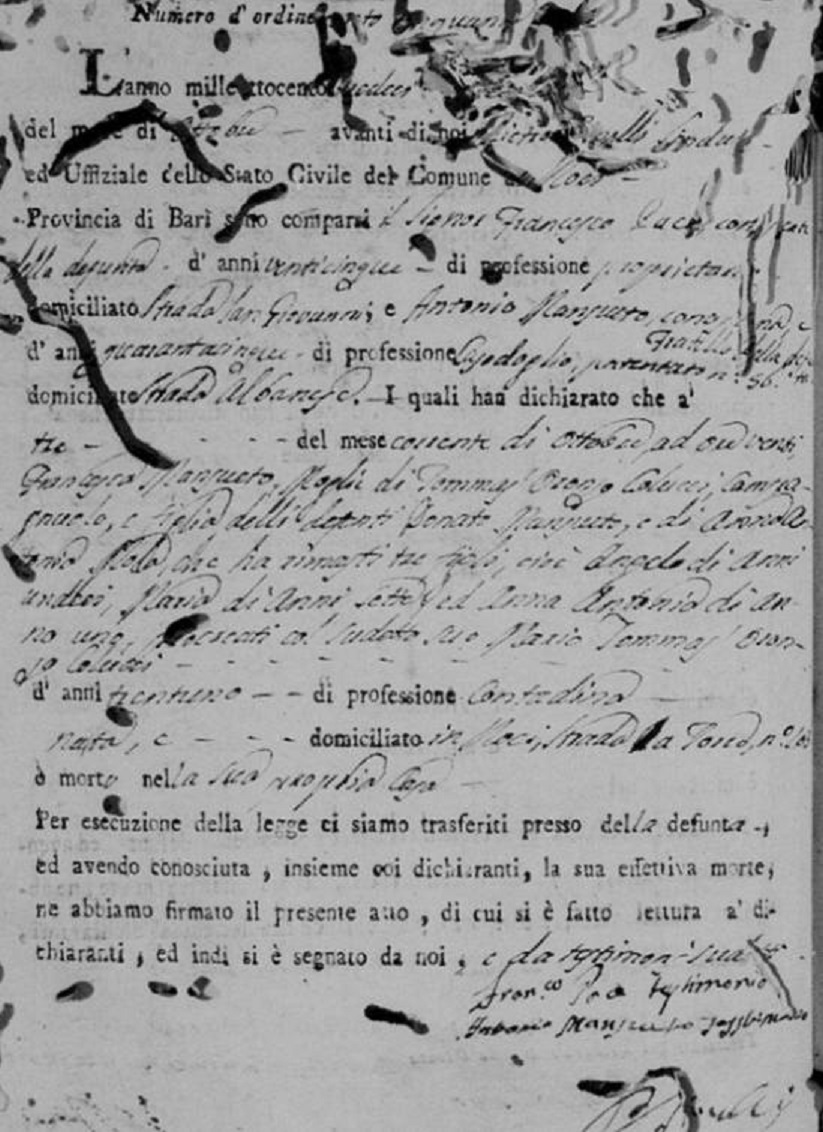 Numero d'ordine cento cinquant
L'anno mille ottocento
del mese di Ottobre - avanti di noi Sindaco
ed Uffiziale dello Stato Civile del Comune di Noci -
Provincia di Bari sono comparsi il Signor Francesco Pace,
della defunta - d'anni venticinque - di professione proprietario
domiciliato Strada San Giovanni; e Antonio Mansueto, e
Fratello della de-
d'anni quarantacinque - di professione n.º 56.
domiciliato Strada Albanese. - I quali han dichiarato che a'
tre - - - - - del mese corrente di Ottobre ad ore venti
Francesca Mansueto, Moglie di Tommas' Oronzo Colucci, Campa-
gnuolo, e figlia delli defonti Donato Mansueto, e di
che ha rimasti tre figli, cioè Angelo di Anni
undeci, Maria di Anni sette, ed Anna Antonia di an-
no uno, procreati col sudetto suo Marito Tommas' Oron-
zo Colucci - - - - - -
d'anni trentuno - - di professione Contadina
nata, e - - - - domiciliato in Noci, strada la Torre, n.º
è morta nella sua propria Casa -
Per esecuzione della legge ci siamo trasferiti presso della defunta -,
ed avendo conosciuta, insieme coi dichiaranti, la sua effettiva morte,
ne abbiamo firmato il presente atto, di cui si è fatto lettura a' di-
chiaranti, ed indi si è segnato da noi, e da testimonj
Fran.co Pace Testimonio
Antonio Mansueto Testimonio